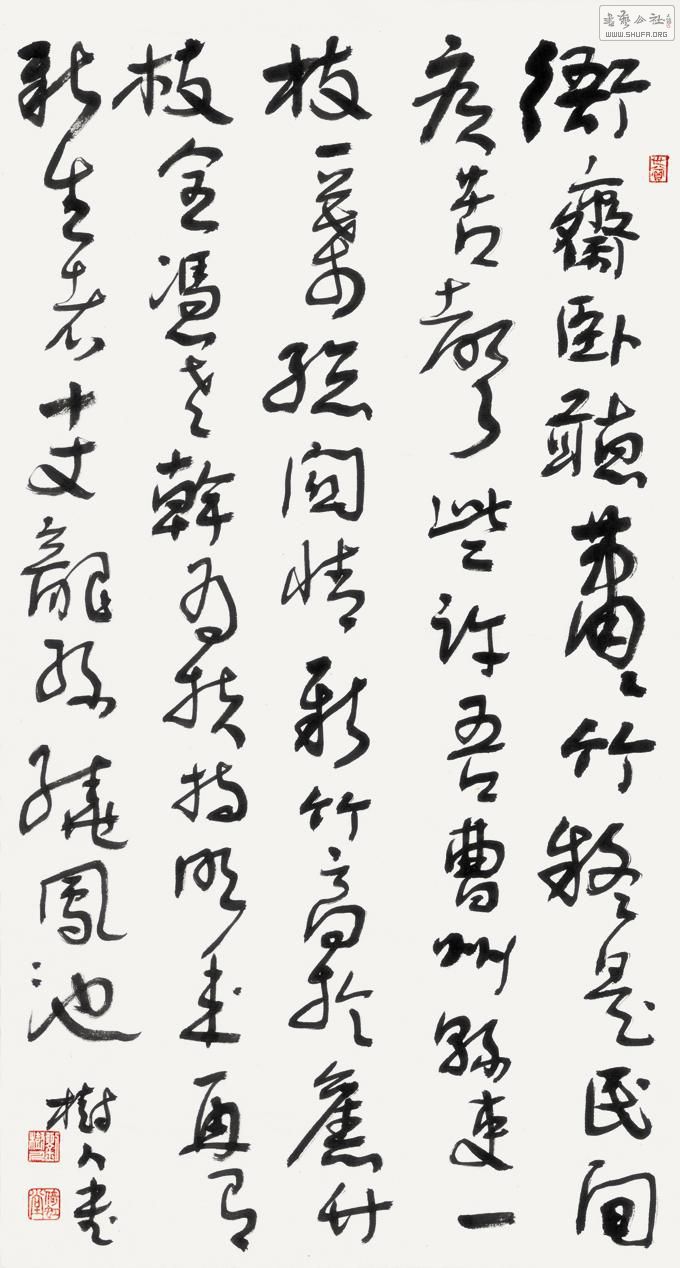 衙齋臥聽蕭々竹疑是民間
疾苦聲些許吾曹州縣吏一
枝一葉總關情新竹高於舊竹
枝全憑老幹為扶持明年再有
新生者十丈龍孫繞鳳池
樹人書
書藝公社
WWW.SHUFA.ORG